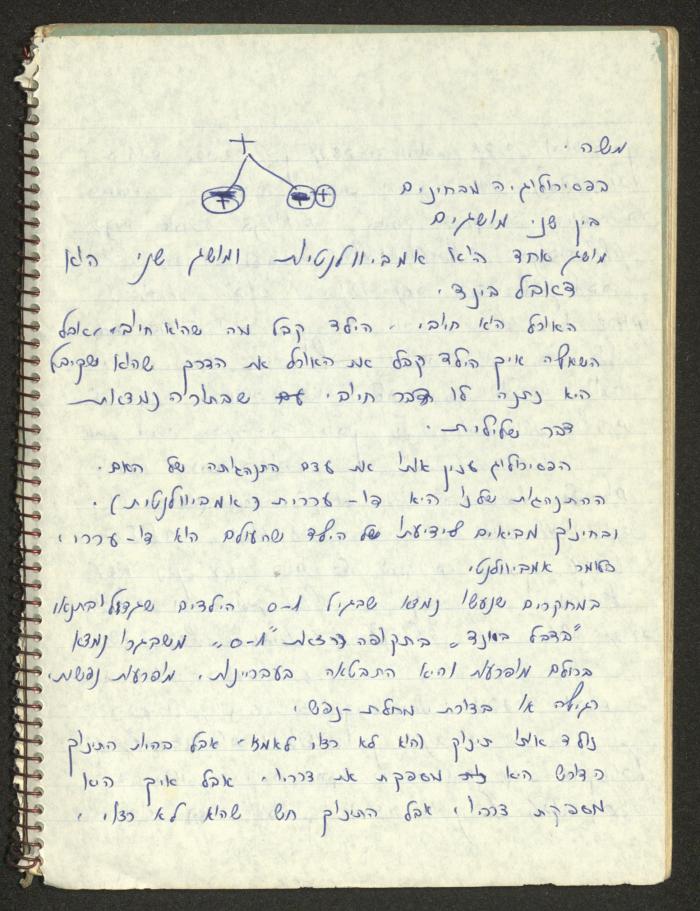 משה.
בפסיכולוגיה מבחינים
בין שני מושגים
מושג אחד הוא אמביוולנטיות ומושג שני הוא
דאובל בינד.
האוכל הוא חיובי. הילד קבל מה שהוא חיובי. אבל
השאלה איך הילד קבל את האוכל את הדרך שהוא שקיבל
היא נתנה לו דבר חיובי שבתוכה נמצאת
דבר שלילית.
הפסיכולוג ענין אותו את עצם התנהגותה של האם.
ההתנהגות שלנו היא דו-ערכית (אמביוולנטית).
ובחינוך מביאים לידיעתו של הילד שהעולם הוא דו-ערכי,
כלומר אמביוולנטי
במחקרים שנעשו נמצא שבגיל 0-5 הילדים שגדלו בתנאי
"בדבל בינד" בתקופה "0-5" משבגרו נמצא
ברובם מופרעות והיא התבטאה בעבריינות, מופרעות נפשית
רגילה או בצורת מחלת-נפש.
נולד אותו תינוק והוא לא רצוי לאמא. אבל בהיות התינוק
הדורש היא מספקת את צרכיו. אבל איך היא
מספקת צרכיו, אבל התינוק חש שהוא לא רצוי.